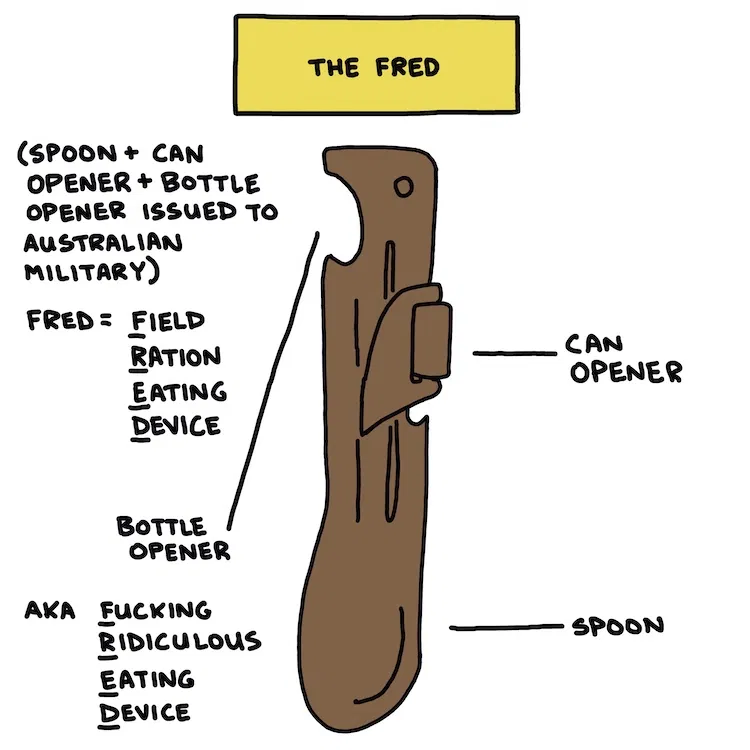 THE FRED
(SPOON + CAN
OPENER + BOTTLE
OPENER ISSUED TO
AUSTRALIAN
MILITARY)
FRED = FIELD
RATION
EATING
DEVICE
CAN
OPENER
BOTTLE
OPENER
AKA FUCKING
RIDICULOUS
EATING
DEVICE
SPOON